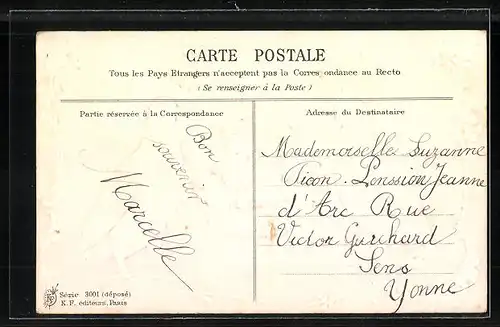 CARTE POSTALE
Tous les Pays Etrangers n'acceptent pas la Corres ondance au Recto
(Se renseigner à la Poste)
Partie réservée à la Correspondance
Bon
souvenir
Marcelle
Série 3001 (déposé)
K. F. éditeurs, Paris
Adresse du Destinataire
Mademoiselle Suzanne
Picon. Penssion Jeanne
d'Arc Rue
Victor Guichard
Sens
Yonne